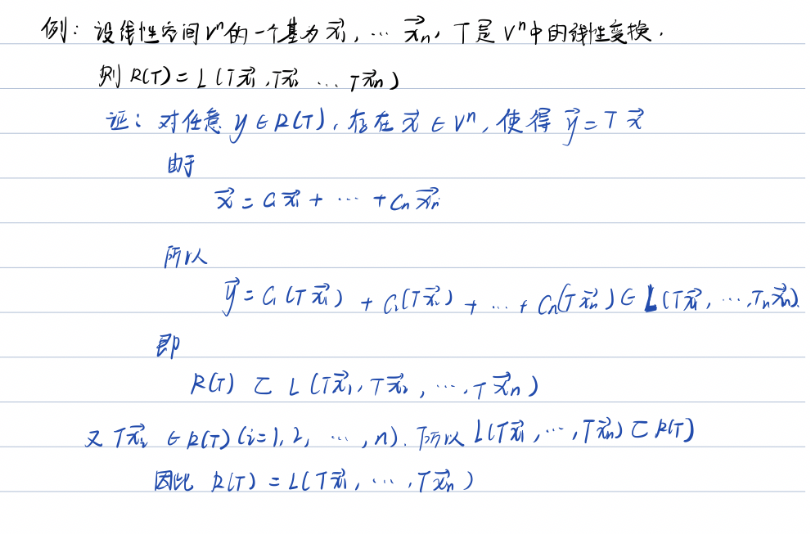 例：设线性空间Vⁿ的一个基为x⃗₁, ⋯ x⃗ₙ, T是Vⁿ中的线性变换.
则 R(T) = L(Tx⃗₁, Tx⃗₂ ⋯ Tx⃗ₙ)
证：对任意 y ∈ R(T), 存在 x⃗ ∈ Vⁿ, 使得 y⃗ = T x⃗
由于
x⃗ = C₁x⃗₁ + ⋯ + Cₙx⃗ₙ
所以
y⃗ = C₁(Tx⃗₁) + C₂(Tx⃗₂) + ⋯ + Cₙ(Tx⃗ₙ) ∈ L(Tx⃗₁, ⋯, Tₙx⃗ₙ).
即
R(T) ⊂ L(Tx⃗₁, Tx⃗₂, ⋯, Tx⃗ₙ)
又 Tx⃗ᵢ ∈ R(T) (i=1, 2, ⋯, n). 所以 L(Tx⃗₁, ⋯, Tx⃗ₙ) ⊂ R(T)
因此 R(T) = L(Tx⃗₁, ⋯, Tx⃗ₙ)